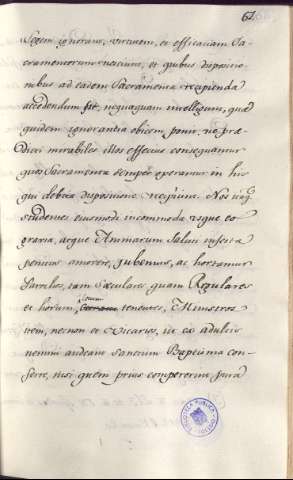 62
Legem ignorant, virtutem, et efficaciam Sa-
cramentorum nesciunt, et quibus dispositio-
nibus ad eadem Sacramenta recipienda
accedendum sit, nequaquam intelligunt, quae
quidem ignorantia obicem ponit, ne præ-
dicti mirabiles illos effectus consequantur
quos Sacramenta semper operantur in his
qui debita dispositione recipiunt. Nos itaq.
studentes eiusmodi incommoda usque eo
gravia, atque Animarum Saluti infesta
penitus amovere, Jubemus, ac hortamur
Parochos, tam Sæculares, quam Regulares
et horum, locum tenentes, Ministros
item, necnon et Vicarios, ut ex adultis
nemini audeant Sanctum Baptisma con-
ferre, nisi quem prius compererint pura
BIBLIOTECA PUBLICA
TOLEDO